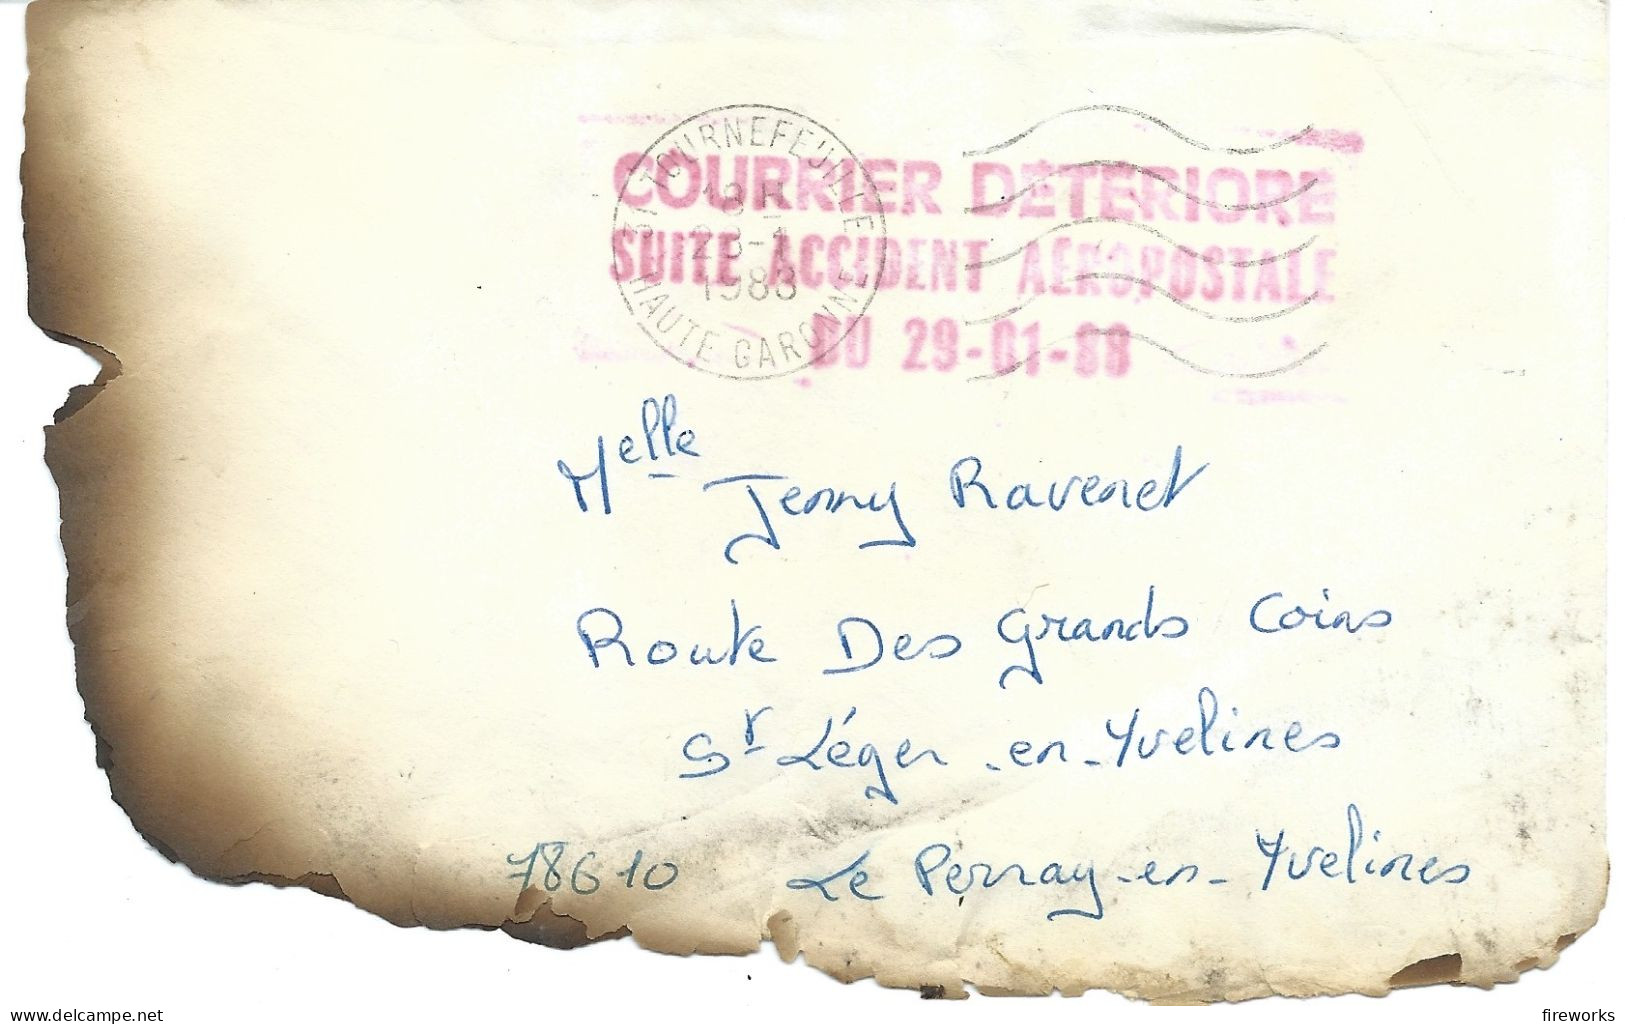 31 TOURNEFEUILLE
18 H
28-1
1988
HAUTE GARONNE
COURRIER DETERIORE
SUITE ACCIDENT AEROPOSTALE
DU 29-01-88
Melle Jenny Ravenet
Route Des Grands Coins
St Léger-en-Yvelines
78610 Le Perray-en-Yvelines
delcampe.net
fireworks